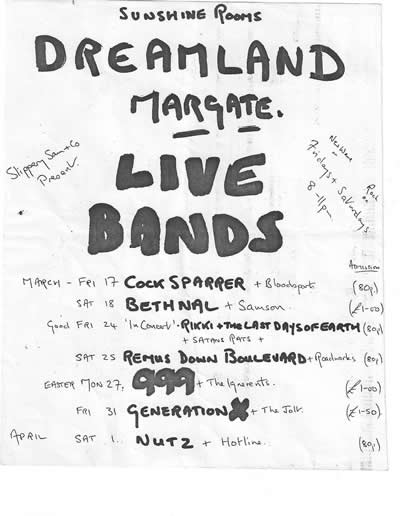 SUNSHINE ROOMS
DREAMLAND
MARGATE.
Slippery Sam + Co
Present.
New Wave Rock
Fridays + Saturdays
8 - 11pm
LIVE
BANDS
Admission
MARCH - FRI 17 COCK SPARRER + Bloodsport (80p)
SAT 18 BETHNAL + Samson. (£1-00)
Good FRI 24 'In Concert' - RIKKI + THE LAST DAYS OF EARTH (80p)
+ SATANS RATS +
SAT 25 REMUS DOWN BOULEVARD + Roadworks (80p)
EASTER MON 27. 999 + The Ignerents. (£1-00)
FRI 31 GENERATION X + The Jolt. (£1-50)
APRIL SAT 1.. NUTZ + Hotline.. (80p)